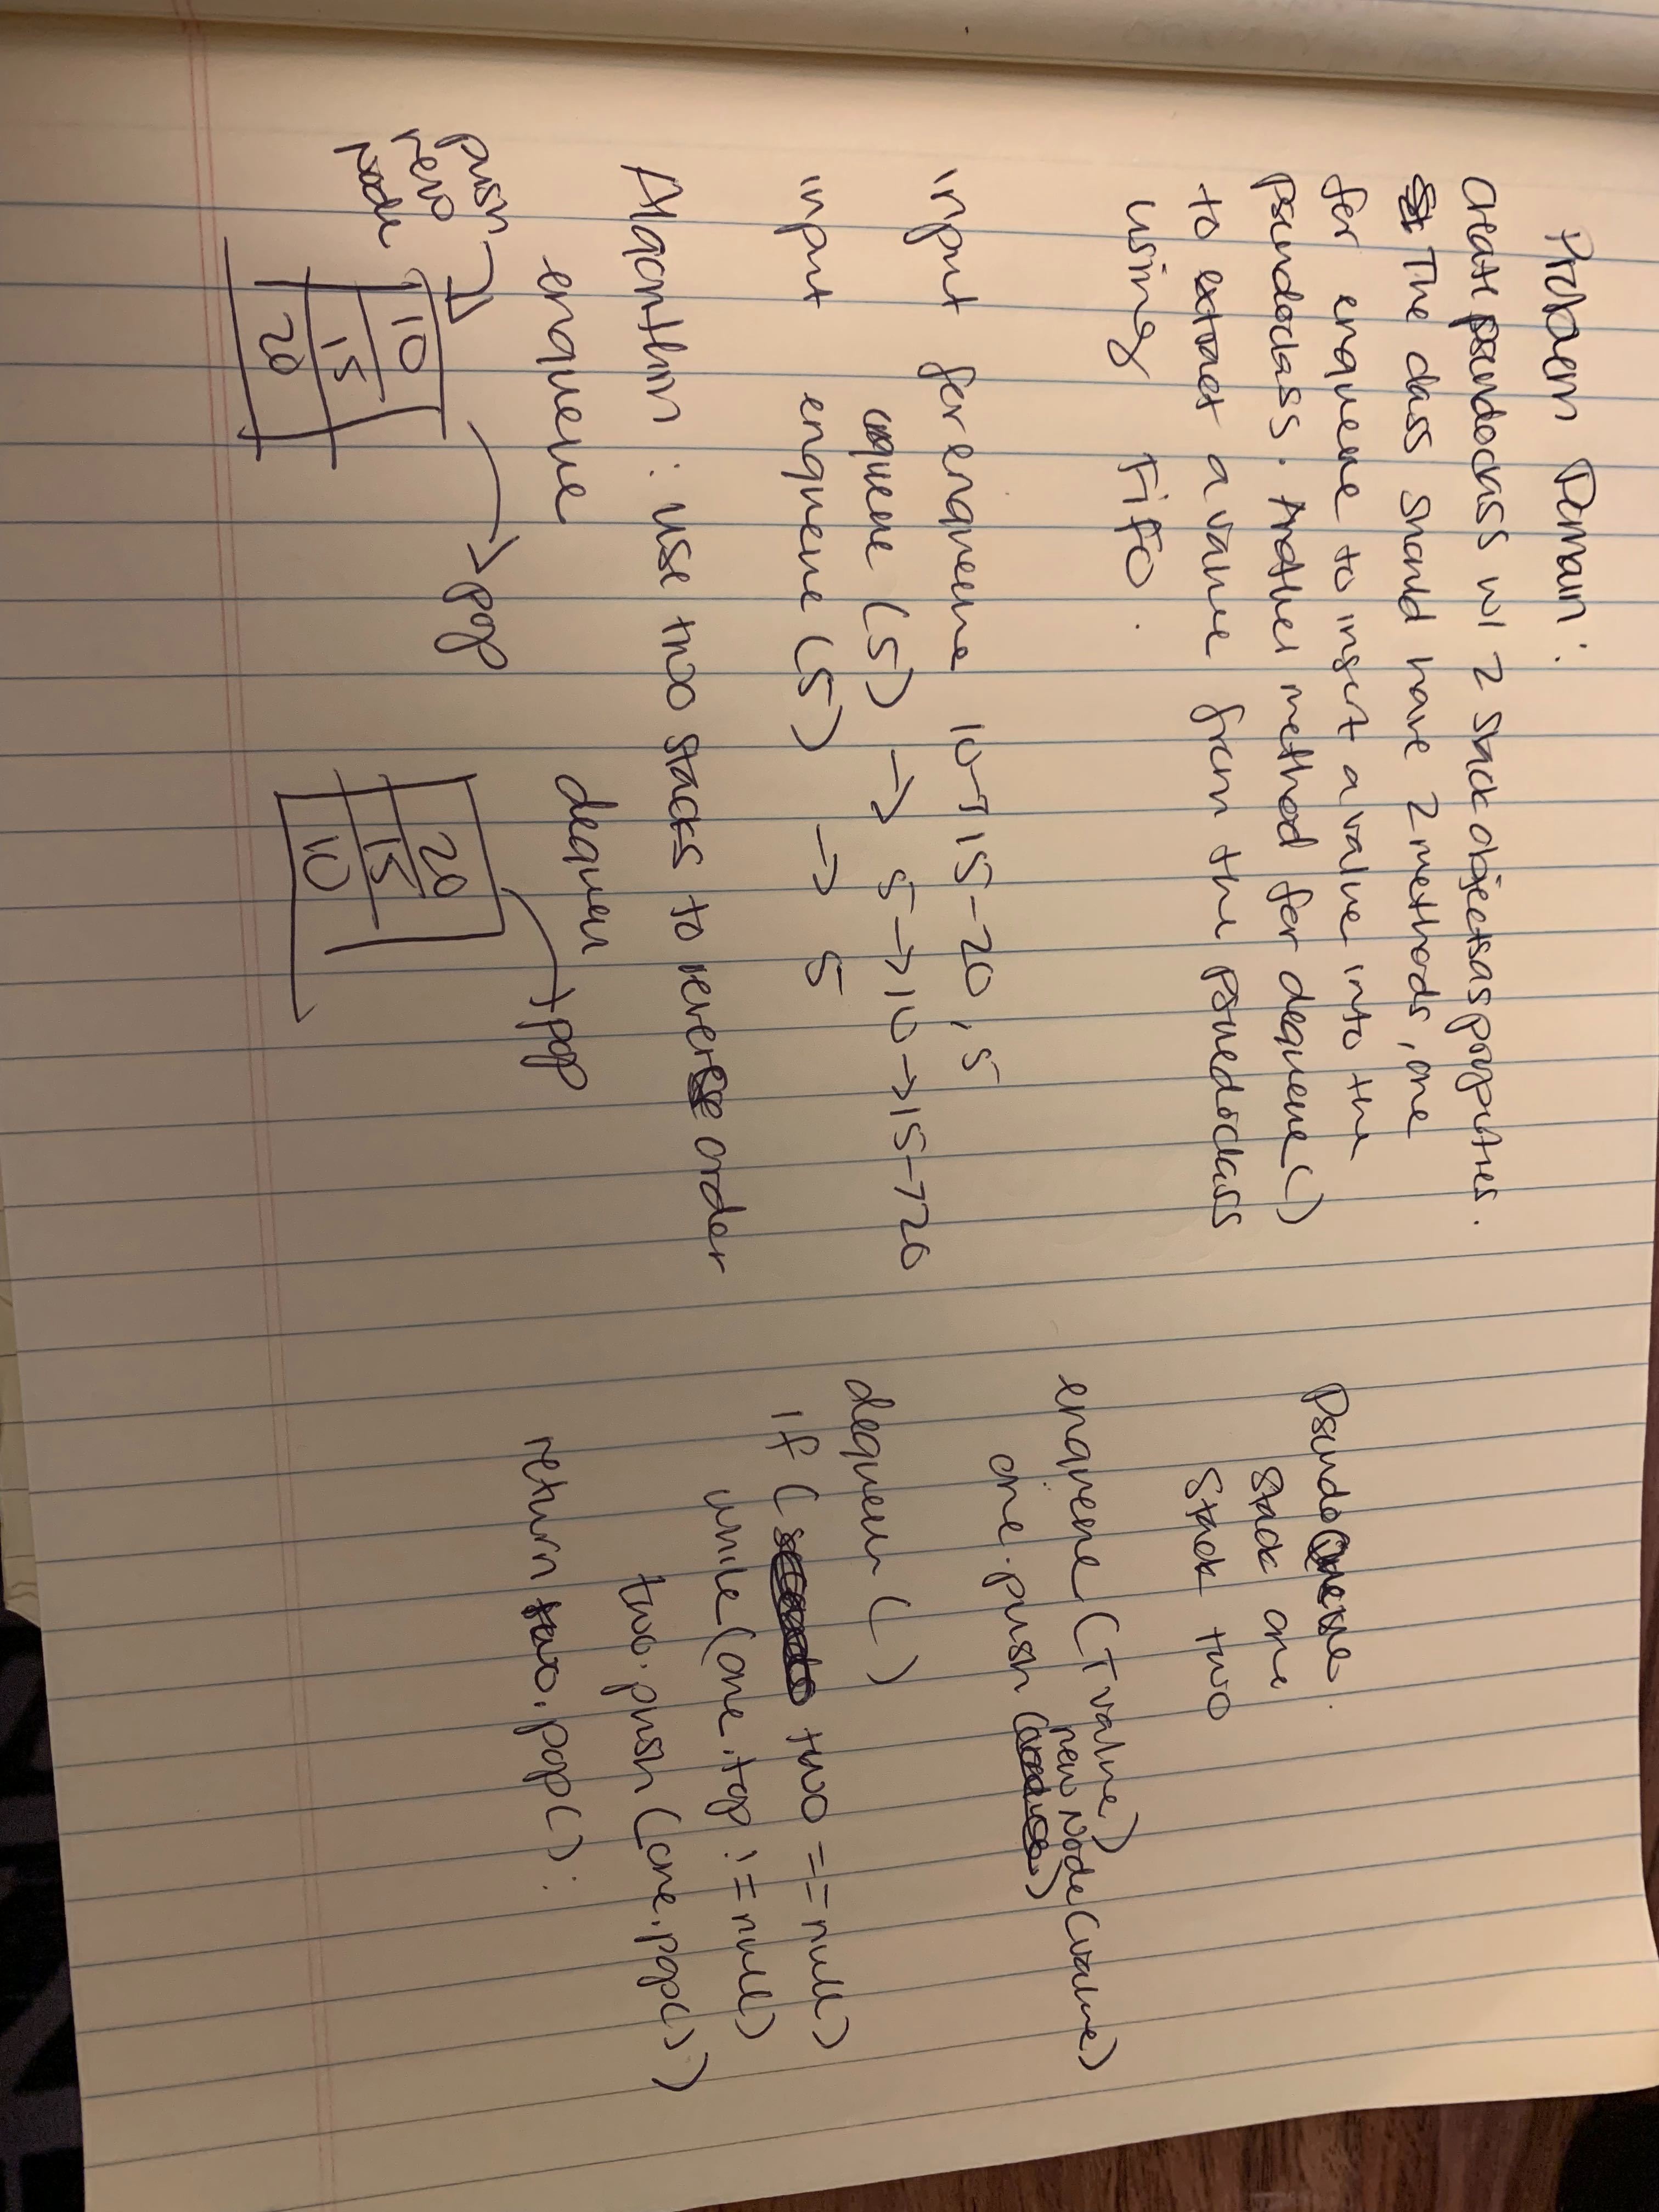 Problem Domain:
Create pseudoclass w/ 2 stack objects as properties.
The class should have 2 methods, one
for enqueue to insert a value into the
pseudoclass. Another method for dequeue()
to extract a value from the psuedoclass
using FiFo.
input for enqueue 10→15-20, 5
enqueue (5) → 5→10→15→20
input enqueue (5) → 5
Algorithm: use two stacks to reverse order
enqueue dequeu
push
new
node
10
15
20
pop
20
15
10
pop
Pseudo Queue:
Stack one
Stack two
enqueue (T value)
one.push (new Node(value)
dequeu ( )
if ( two == null)
while (one.top != null)
two.push (one.pop())
return two.pop();